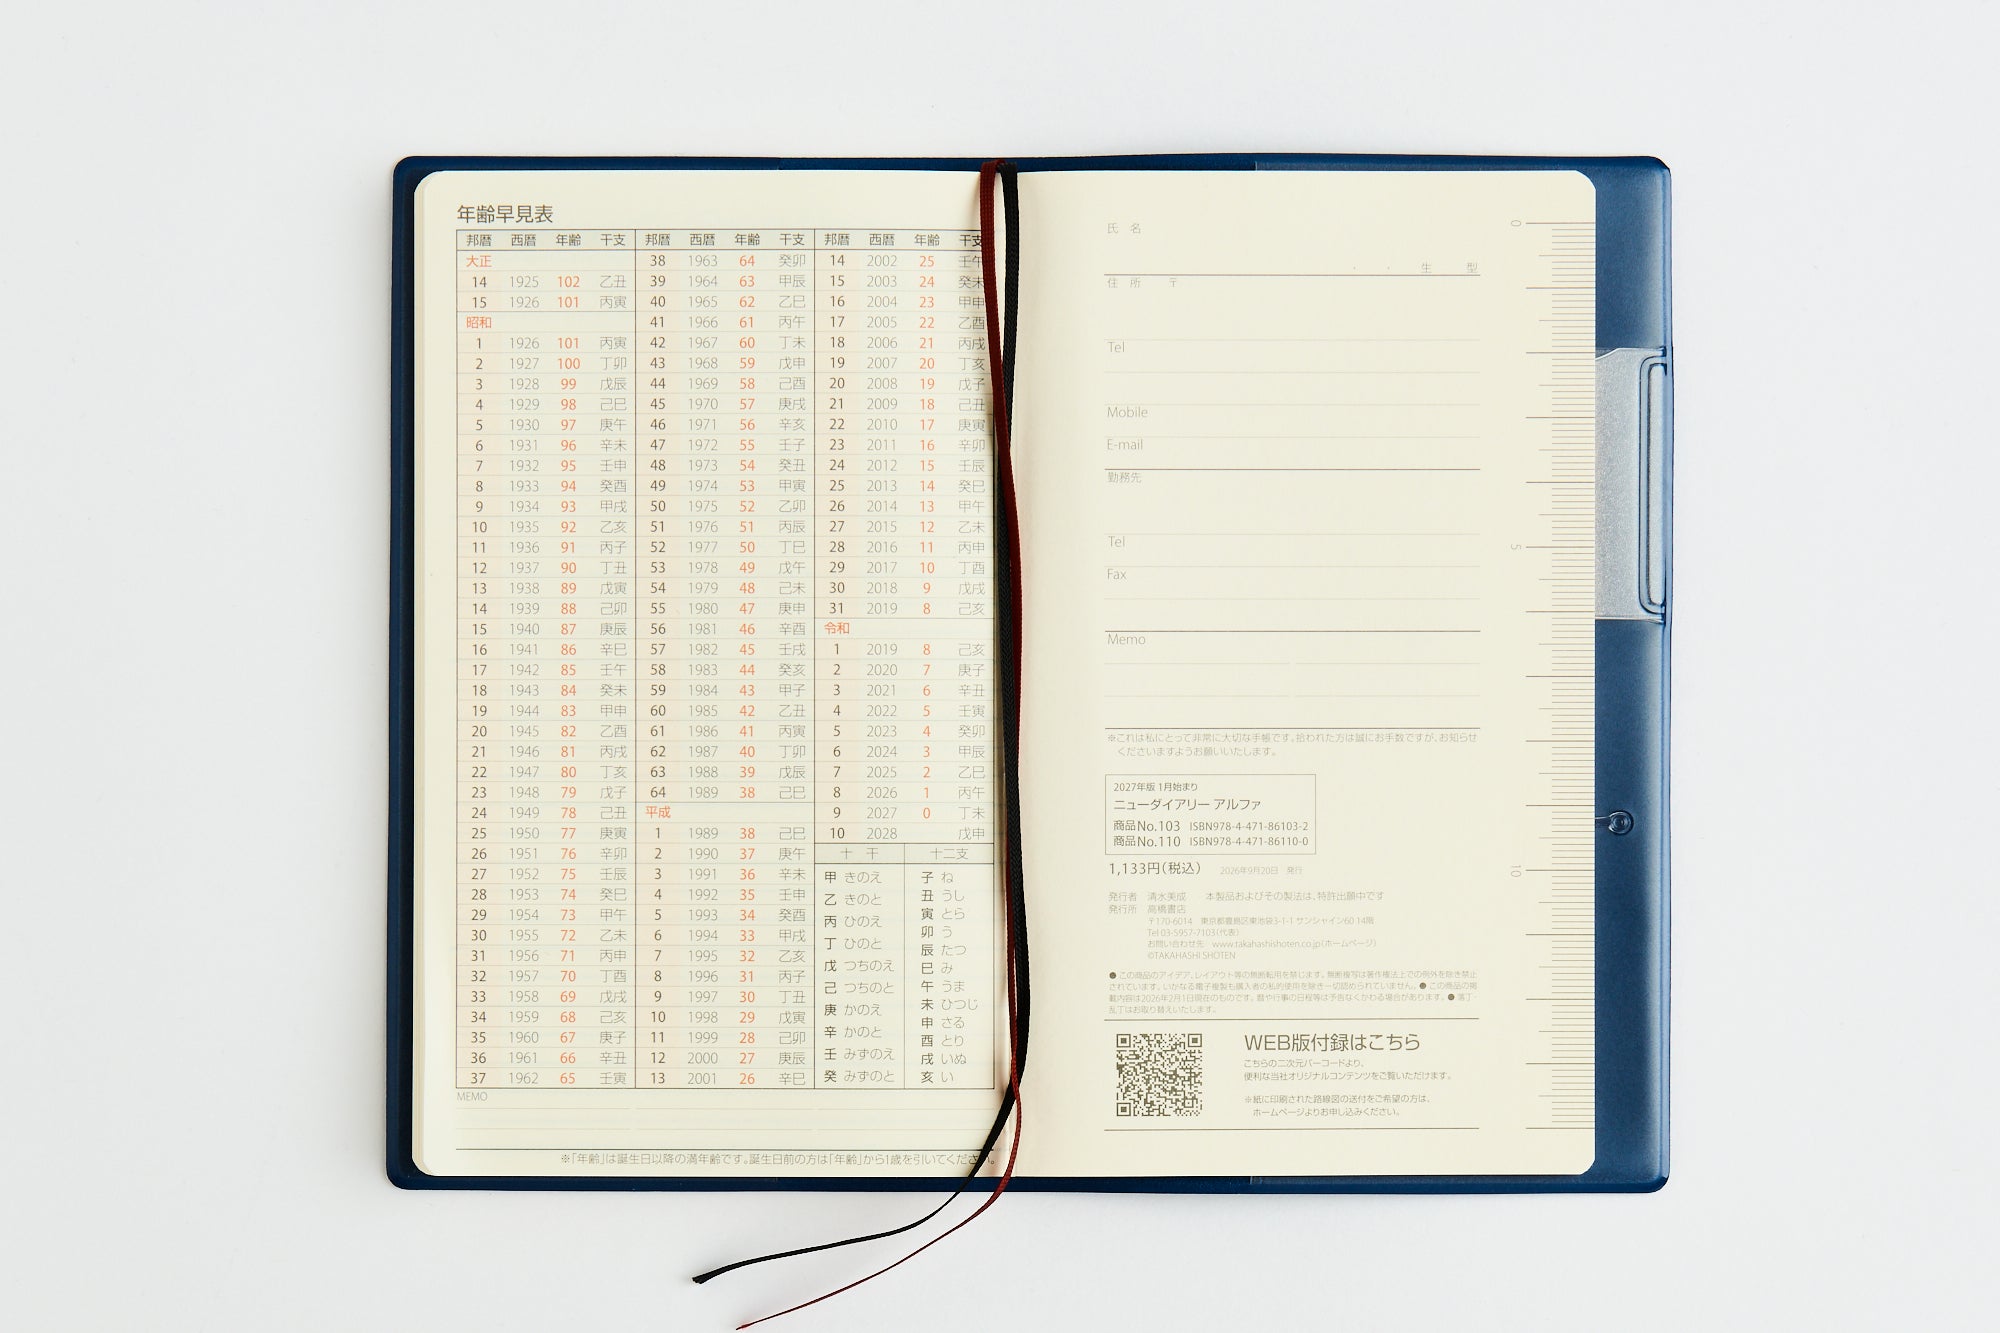 年齢早見表
邦暦 西暦 年齢 干支
大正
14 1925 102 乙丑
15 1926 101 丙寅
昭和
1 1926 101 丙寅
2 1927 100 丁卯
3 1928 99 戊辰
4 1929 98 己巳
5 1930 97 庚午
6 1931 96 辛未
7 1932 95 壬申
8 1933 94 癸酉
9 1934 93 甲戌
10 1935 92 乙亥
11 1936 91 丙子
12 1937 90 丁丑
13 1938 89 戊寅
14 1939 88 己卯
15 1940 87 庚辰
16 1941 86 辛巳
17 1942 85 壬午
18 1943 84 癸未
19 1944 83 甲申
20 1945 82 乙酉
21 1946 81 丙戌
22 1947 80 丁亥
23 1948 79 戊子
24 1949 78 己丑
25 1950 77 庚寅
26 1951 76 辛卯
27 1952 75 壬辰
28 1953 74 癸巳
29 1954 73 甲午
30 1955 72 乙未
31 1956 71 丙申
32 1957 70 丁酉
33 1958 69 戊戌
34 1959 68 己亥
35 1960 67 庚子
36 1961 66 辛丑
37 1962 65 壬寅
邦暦 西暦 年齢 干支
38 1963 64 癸卯
39 1964 63 甲辰
40 1965 62 乙巳
41 1966 61 丙午
42 1967 60 丁未
43 1968 59 戊申
44 1969 58 己酉
45 1970 57 庚戌
46 1971 56 辛亥
47 1972 55 壬子
48 1973 54 癸丑
49 1974 53 甲寅
50 1975 52 乙卯
51 1976 51 丙辰
52 1977 50 丁巳
53 1978 49 戊午
54 1979 48 己未
55 1980 47 庚申
56 1981 46 辛酉
57 1982 45 壬戌
58 1983 44 癸亥
59 1984 43 甲子
60 1985 42 乙丑
61 1986 41 丙寅
62 1987 40 丁卯
63 1988 39 戊辰
64 1989 38 己巳
平成
1 1989 38 己巳
2 1990 37 庚午
3 1991 36 辛未
4 1992 35 壬申
5 1993 34 癸酉
6 1994 33 甲戌
7 1995 32 乙亥
8 1996 31 丙子
9 1997 30 丁丑
10 1998 29 戊寅
11 1999 28 己卯
12 2000 27 庚辰
13 2001 26 辛巳
邦暦 西暦 年齢 干支
14 2002 25 壬午
15 2003 24 癸未
16 2004 23 甲申
17 2005 22 乙酉
18 2006 21 丙戌
19 2007 20 丁亥
20 2008 19 戊子
21 2009 18 己丑
22 2010 17 庚寅
23 2011 16 辛卯
24 2012 15 壬辰
25 2013 14 癸巳
26 2014 13 甲午
27 2015 12 乙未
28 2016 11 丙申
29 2017 10 丁酉
30 2018 9 戊戌
31 2019 8 己亥
令和
1 2019 8 己亥
2 2020 7 庚子
3 2021 6 辛丑
4 2022 5 壬寅
5 2023 4 癸卯
6 2024 3 甲辰
7 2025 2 乙巳
8 2026 1 丙午
9 2027 0 丁未
10 2028 戊申
十干
甲 きのえ
乙 きのと
丙 ひのえ
丁 ひのと
戊 つちのえ
己 つちのと
庚 かのえ
辛 かのと
壬 みずのえ
癸 みずのと
十二支
子 ね
丑 うし
寅 とら
卯 う
辰 たつ
巳 み
午 うま
未 ひつじ
申 さる
酉 とり
戌 いぬ
亥 い
MEMO
※「年齢」は誕生日以降の満年齢です。誕生日前の方は「年齢」から1歳を引いてください。
氏名
・ ・ 生 型
住所 〒
Tel
Mobile
E-mail
勤務先
Tel
Fax
Memo
※これは私にとって非常に大切な手帳です。拾われた方は誠にお手数ですが、お知らせ
くださいますようお願いいたします。
2027年版 1月始まり
ニューダイアリー アルファ
商品No.103 ISBN978-4-471-86103-2
商品No.110 ISBN978-4-471-86110-0
1,133円(税込) 2026年9月20日 発行
発行者 清水美成 本製品およびその製法は、特許出願中です
発行所 高橋書店
〒170-6014 東京都豊島区東池袋3-1-1 サンシャイン60 14階
Tel 03-5957-7103(代表)
お問い合わせ先 www.takahashishoten.co.jp(ホームページ)
©TAKAHASHI SHOTEN
●この商品のアイデア、レイアウト等の無断転用を禁じます。無断複写は著作権法上での例外を除き禁止
されています。いかなる電子複製も購入者の私的使用を除き一切認められていません。●この商品の掲
載内容は2026年2月1日現在のものです。暦や行事の日程等は予告なくかわる場合があります。●落丁・
乱丁はお取り替えいたします。
WEB版付録はこちら
こちらの二次元バーコードより、
便利な当社オリジナルコンテンツをご覧いただけます。
※紙に印刷された路線図の送付をご希望の方は、
ホームページよりお申し込みください。
0
5
10